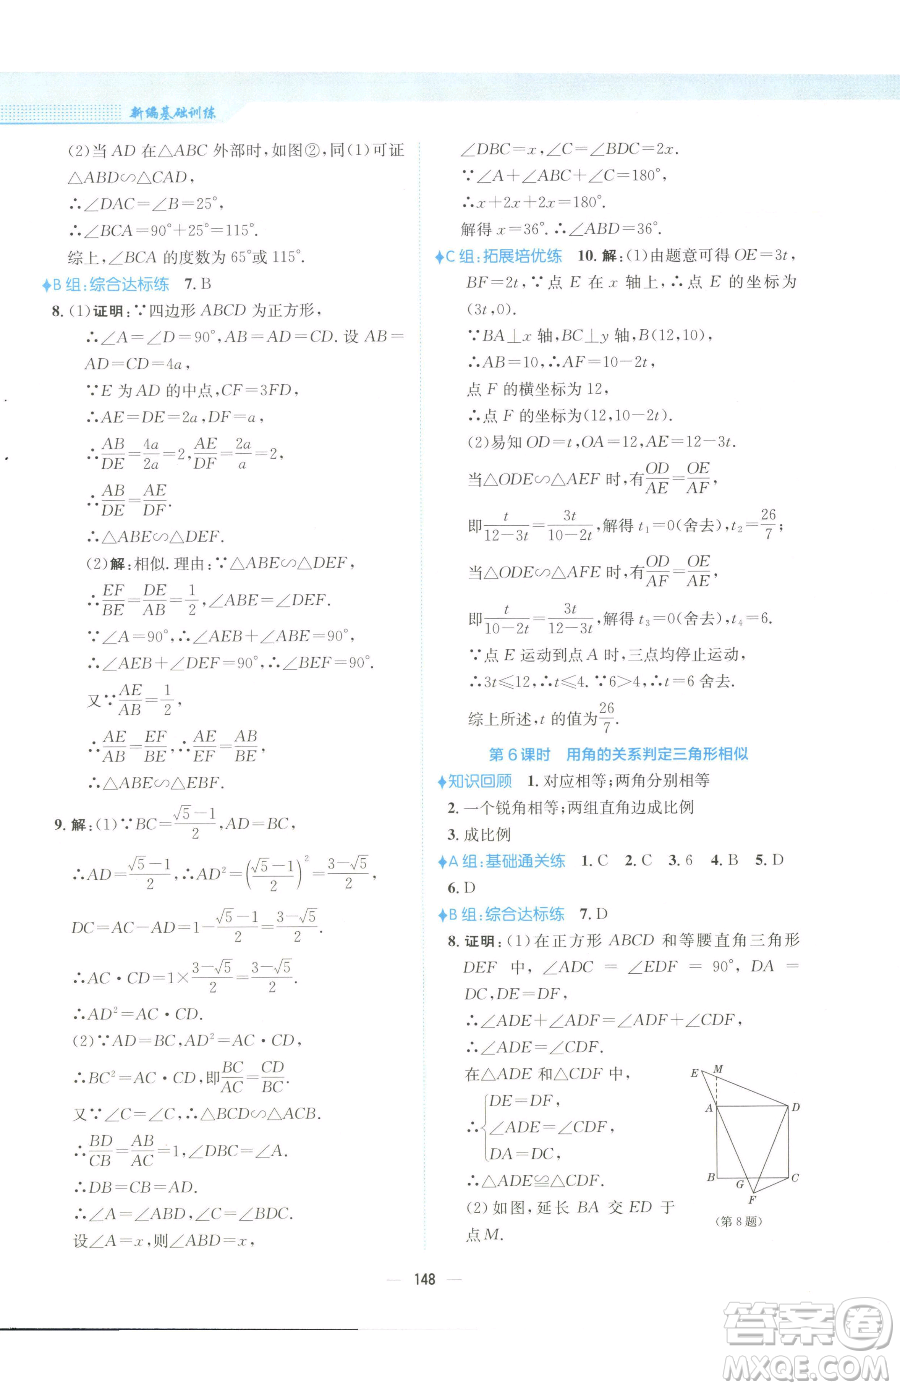 新编基础训练
(2)当 AD 在△ABC 外部时,如图②,同(1)可证
△ABD∽△CAD,
∴∠DAC=∠B=25°,
∴∠BCA=90°+25°=115°.
综上,∠BCA 的度数为 65°或 115°.
B 组:综合达标练 7. B
8. (1)证明:∵四边形 ABCD 为正方形,
∴∠A=∠D=90°,AB=AD=CD. 设
AD=CD=4a,
∵E 为 AD 的中点,CF=3FD,
∴AE=DE=2a,DF=a,
∴AB/DE=4a/2a=2,AE/DF=2a/a=2,
∴AB/DE=AE/DF.
∴△ABE∽△DEF.
(2)解:相似. 理由:∵△ABE∽△DEF,
∴EF/BE=DE/AB=1/2,∠ABE=∠DEF.
∵∠A=90°,∴∠AEB+∠ABE=90°.
∴∠AEB+∠DEF=90°.∴∠BEF=90°.
又∵AE/AB=1/2,
∴AE/AB=EF/BE,∴AE/EF=AB/BE.
∴△ABE∽△EBF.
9. 解:(1)∵BC=(√5-1)/2,AD=BC,
∴AD=(√5-1)/2,∴AD²=((√5-1)/2)²=(3-√5)/2,
DC=AC-AD=1-(√5-1)/2=(3-√5)/2.
∴AC·CD=1×(3-√5)/2=(3-√5)/2.
∴AD²=AC·CD.
(2)∵AD=BC,AD²=AC·CD,
∴BC²=AC·CD,即BC/AC=CD/BC.
又∵∠C=∠C,∴△BCD∽△ACB.
∴BD/CB=AB/AC=1,∠DBC=∠A.
∴DB=CB=AD.
∴∠A=∠ABD,∠C=∠BDC.
设∠A=x,则∠ABD=x,
∠DBC=x,∠C=∠BDC=2x.
∵∠A+∠ABC+∠C=180°,
∴x+2x+2x=180°.
解得 x=36°.∴∠ABD=36°.
C 组:拓展培优练 10. 解:(1)由题意可得 OE=3t,
BF=2t,∵点 E 在 x 轴上,∴点 E 的坐标为
(3t,0).
∵BA⊥x 轴,BC⊥y 轴,B(12,10),
∴AB=10,∴AF=10-2t.
点 F 的横坐标为 12,
∴点 F 的坐标为(12,10-2t).
(2)易知 OD=t,OA=12,AE=12-3t.
当△ODE∽△AEF 时,有OD/AE=OE/AF,
即t/(12-3t)=3t/(10-2t),解得 t₁=0(舍去),t₂=26/7;
当△ODE∽△AFE 时,有OD/AF=OE/AE,
即t/(10-2t)=3t/(12-3t),解得 t₃=0(舍去),t₄=6.
∵点 E 运动到点 A 时,三点均停止运动,
∴3t⩽12,∴t⩽4.∵6>4,∴t=6 舍去.
综上所述,t 的值为26/7.
第 6 课时 用角的关系判定三角形相似
知识回顾 1. 对应相等;两角分别相等
2. 一个锐角相等;两组直角边成比例
3. 成比例
A 组:基础通关练 1. C 2. C 3. 6 4. B 5. D
6. D
B 组:综合达标练 7. D
8. 证明:(1)在正方形 ABCD 和等腰直角三角形
DEF 中,∠ADC=∠EDF=90°,DA=
DC,DE=DF,
∴∠ADE+∠ADF=∠ADF+∠CDF,
∴∠ADE=∠CDF.
在△ADE 和△CDF 中,
DE=DF,
∴{∠ADE=∠CDF,
DA=DC,
∴△ADE≌△CDF.
(2)如图,延长 BA 交 ED 于
点 M.
E M
A D
B G C
F
(第 8 题)
148
答案圈
MXQE.COM